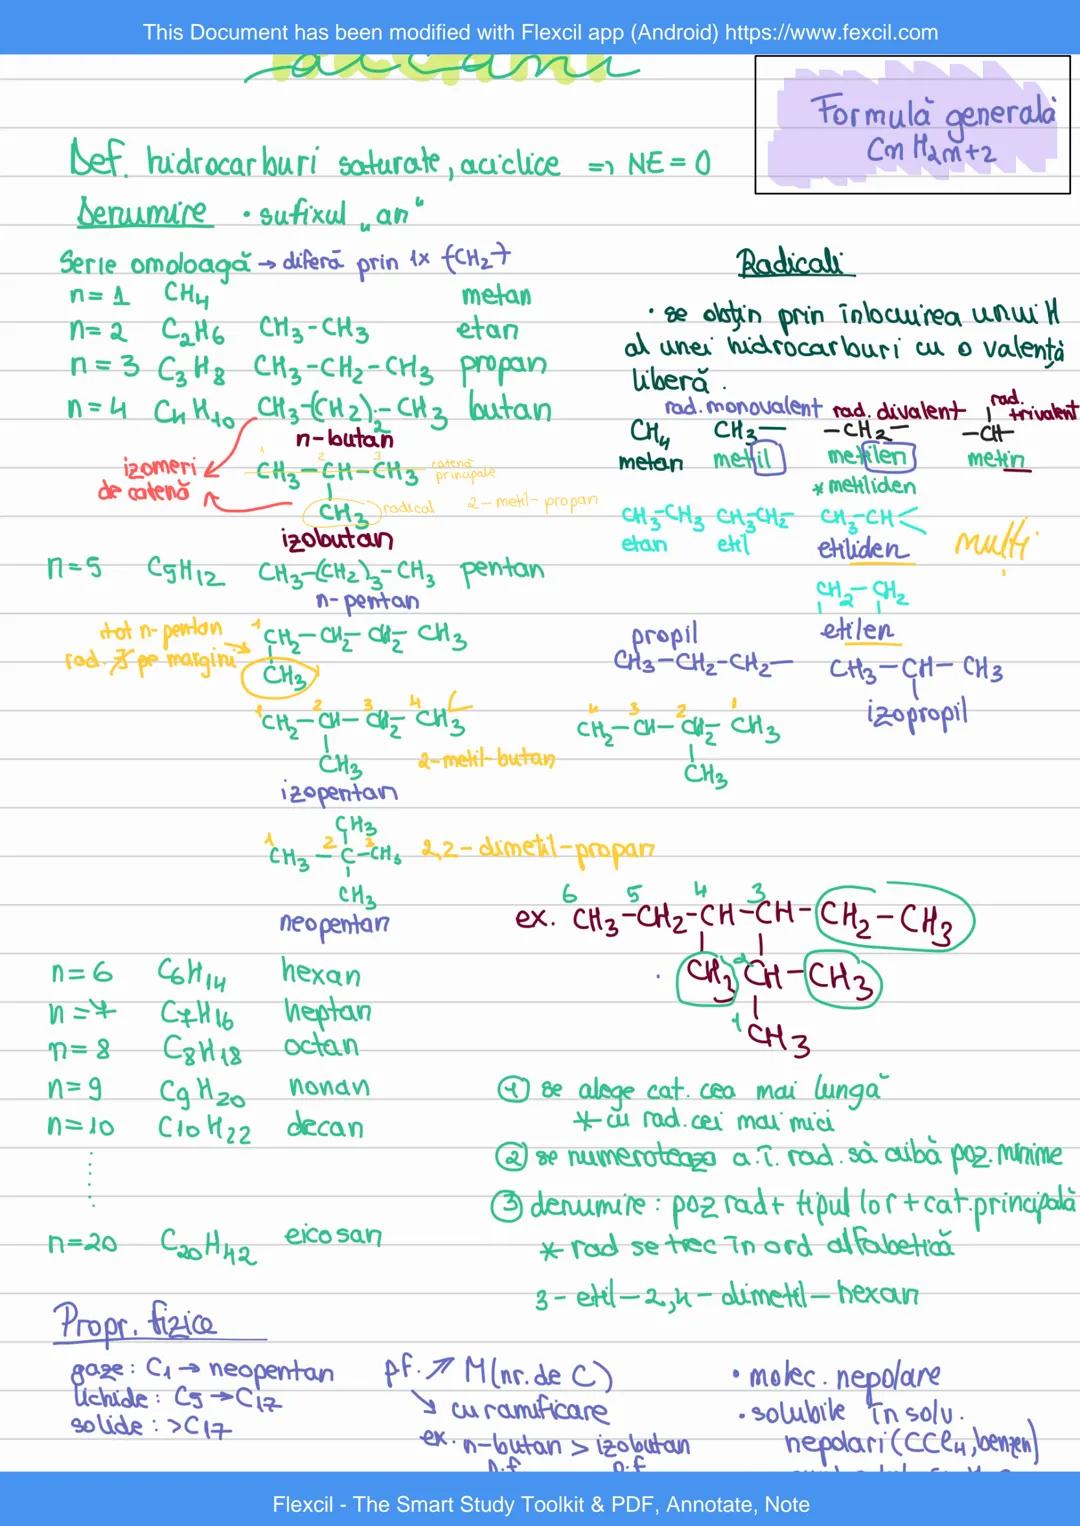 This Document has been modified with Flexcil app (Android) https://www.fexcil.com
alcani
Formulă generală
CnH2n+2
Def. hidrocarburi saturate, aciclice => NE = 0
Denumire • sufixul „an"
Serie omoloagă → diferă prin 1x (CH2)
n=1 CH4 metan
n=2 C2H6 CH3-CH3 etan
n=3 C3H8 CH3-CH2-CH3 propan
n=4 C4H10 CH3-(CH2)2-CH3 butan
n-butan
izomeri de catenă
1 2 3
CH3-CH-CH3 catenă principală
CH3 radical 2-metil-propan
izobutan
n=5 C5H12 CH3-(CH2)3-CH3 pentan
n-pentan
tot n-pentan
rad. pe margini
1
CH2-CH2-CH2-CH3
CH3
1 2 3 4
CH2-CH-CH2-CH3
CH3 2-metil-butan
izopentan
CH3
1 2 3
CH3-C-CH3 2,2-dimetil-propan
CH3
neopentan
n=6 C6H14 hexan
n=7 C7H16 heptan
n=8 C8H18 octan
n=9 C9H20 nonan
n=10 C10H22 decan
n=20 C20H42 eicosan
Radicali
• se obțin prin înlocuirea unui H
al unei hidrocarburi cu o valență
liberă.
rad. monovalent rad. divalent rad. trivalent
CH4 CH3— —CH2— —CH—
metan metil metilen metin
* metiliden
CH3-CH3 CH3-CH2- CH3-CH<
etan etil etiliden multi
CH2-CH2
etilen
propil
CH3-CH2-CH2— CH3-CH-CH3
izopropil
4 3 2 1
CH2-CH-CH2-CH3
CH3
6 5 4 3
ex. CH3-CH2-CH-CH-CH2-CH3
CH3 2 CH-CH3
1 CH3
① se alege cat. cea mai lungă
* cu rad. cei mai mici
② se numerotează a.î. rad. să aibă poz. minime
③ denumire: poz rad + tipul lor + cat. principală
* rad se trec în ord alfabetică
3-etil-2,4-dimetil-hexan
Propr. fizice
gaze: C1 → neopentan
lichide: C5 → C17
solide: >C17
pf. ↗ M(nr. de C)
↘ cu ramificare
ex. n-butan > izobutan
p.f p.f
• molec. nepolare
• solubile în solv.
nepolari (CCl4, benzen)
Flexcil - The Smart Study Toolkit & PDF, Annotate, Note